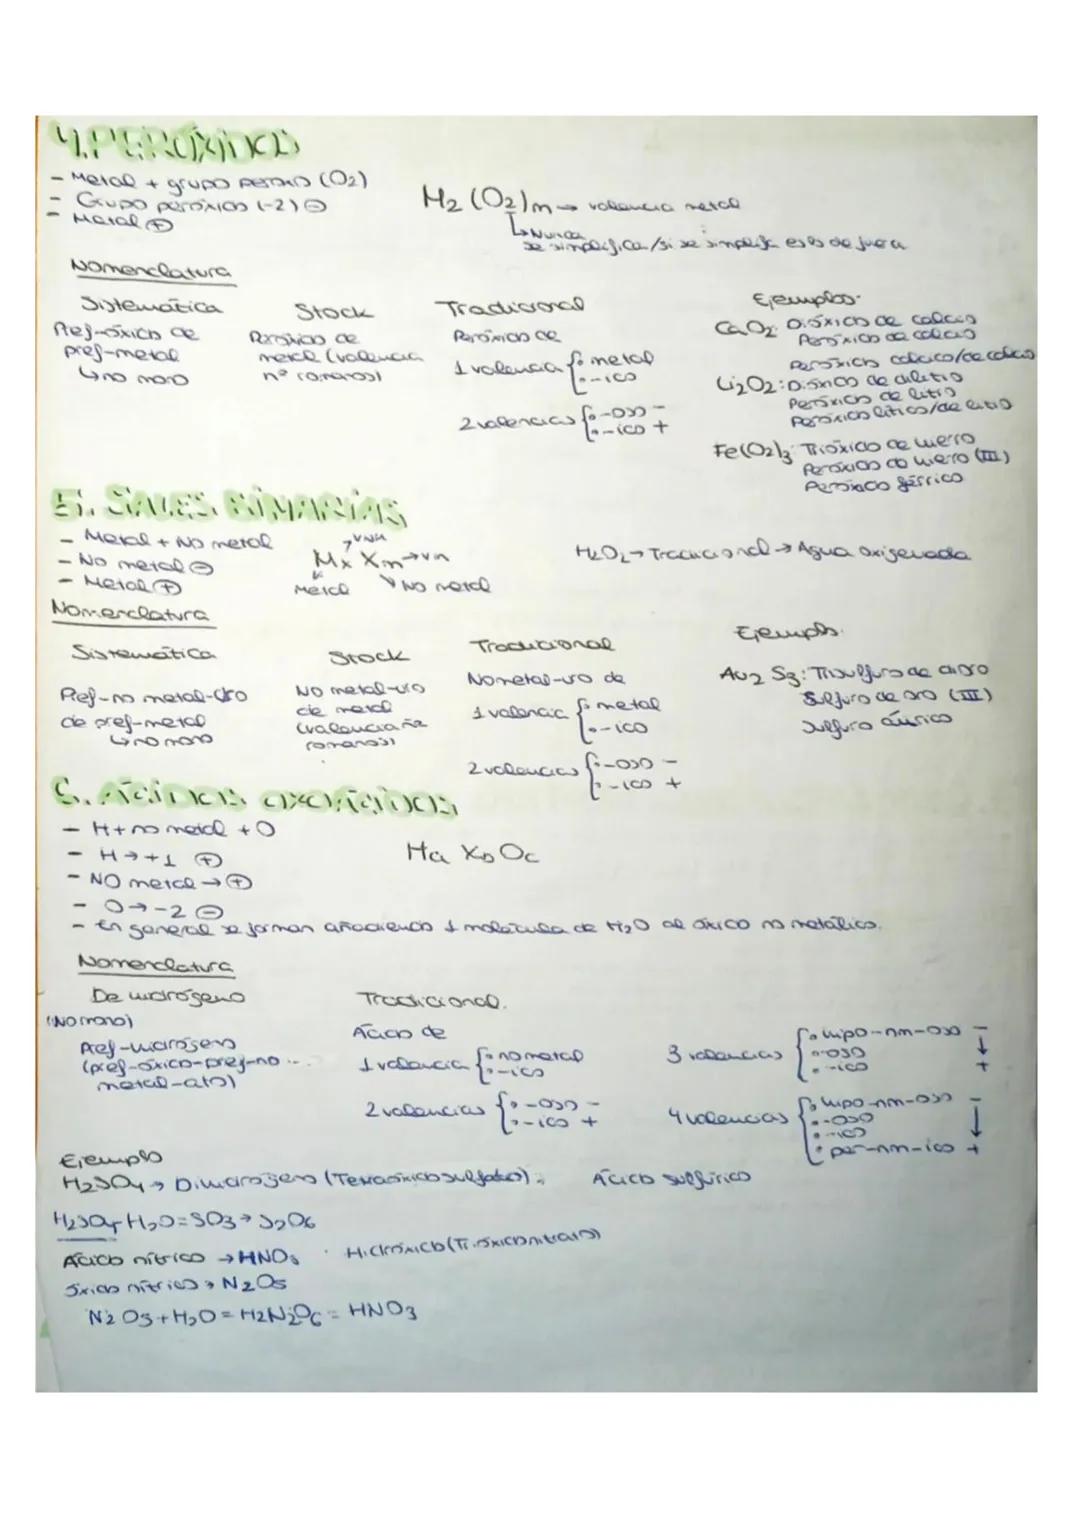 4. PERÓXIDOS
- Metal + grupo peróxido (O2)
- Grupo peróxido (-2) ⊖
- Metal ⊕
M2 (O2)m → valencia metal
↳ Nunca
se simplifica/si se simplifica es de fuera
Nomenclatura
Sistemática Stock Tradicional
Pref-óxido de
pref-metal
↳ no mono
Peróxido de
metal (valencia
nº romanos)
Peróxido de
1 valencia { metal
-ico
2 valencias { -oso -
-ico +
Ejemplos:
CaO2: Dióxido de calcio
Peróxido de calcio
Peróxido cálcico/de calcio
Li2O2: Dióxido de dilitio
Peróxido de litio
Peróxido lítico/de litio
Fe(O2)3: Trióxido de hierro
Peróxido de hierro (III)
Peróxido férrico
5. SALES BINARIAS
- Metal + No metal
- No metal ⊖
- Metal ⊕
Mx Xm → vm
Metal No metal
H2O2 → Tradicional → Agua oxigenada
Nomenclatura
Sistemática Stock Tradicional
Pref-no metal-uro
de pref-metal
↳ no mono
No metal-uro
de metal
(valencia nª
romanos)
No metal-uro de
1 valencia { metal
-ico
2 valencias { -oso -
-ico +
Ejemplo:
Au2 S3: Trisulfuro de dioro
Sulfuro de oro (III)
Sulfuro áurico
6. ÁCIDOS OXOÁCIDOS
- H + no metal + O
- H → +1 ⊕
- NO metal → ⊕
- O → -2 ⊖
- En general se forman añadiendo 1 molécula de H2O al óxido no metálico.
Ha Xb Oc
Nomenclatura
De hidrógeno Tradicional.
(No mono)
Pref-hidrógeno
(pref-óxido-pref-no
metal-ato)
Ácido de
1 valencia { no metal
-ico
2 valencias { -oso -
-ico +
3 valencias { hipo-nm-oso -
-oso ↓
-ico +
4 valencias { hipo-nm-oso -
-oso ↓
-ico
per-nm-ico +
Ejemplo
H2SO4 → Dihidrógeno (Tetraóxidosulfato); Ácido sulfúrico
H2SO4 - H2O = SO3 → S2O6
Ácido nítrico → HNO3 · Hidróxido (Trióxidonitrato)
Óxido nítrico → N2O5
N2O5 + H2O = H2N2O6 = HNO3